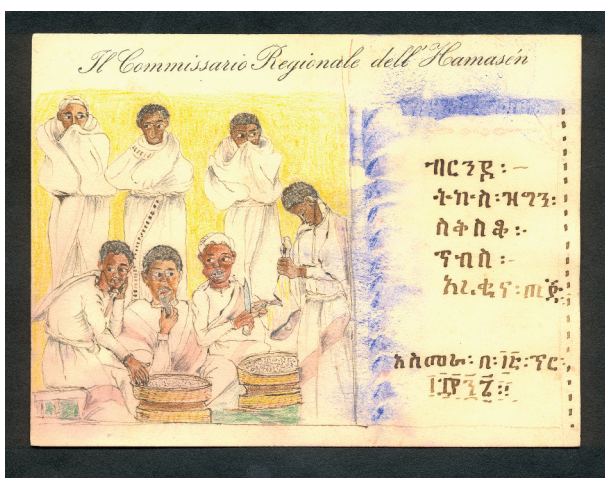 Il Commissario Regionale dell'Hamasén
ብርንዶ፡–
ትኩስ፡ዝግን፡
ስቅስቆ፡-
ጥብስ፡-
አረቂና፡ጠጅ፡
አስመራ፡በ፡ ጥር፡